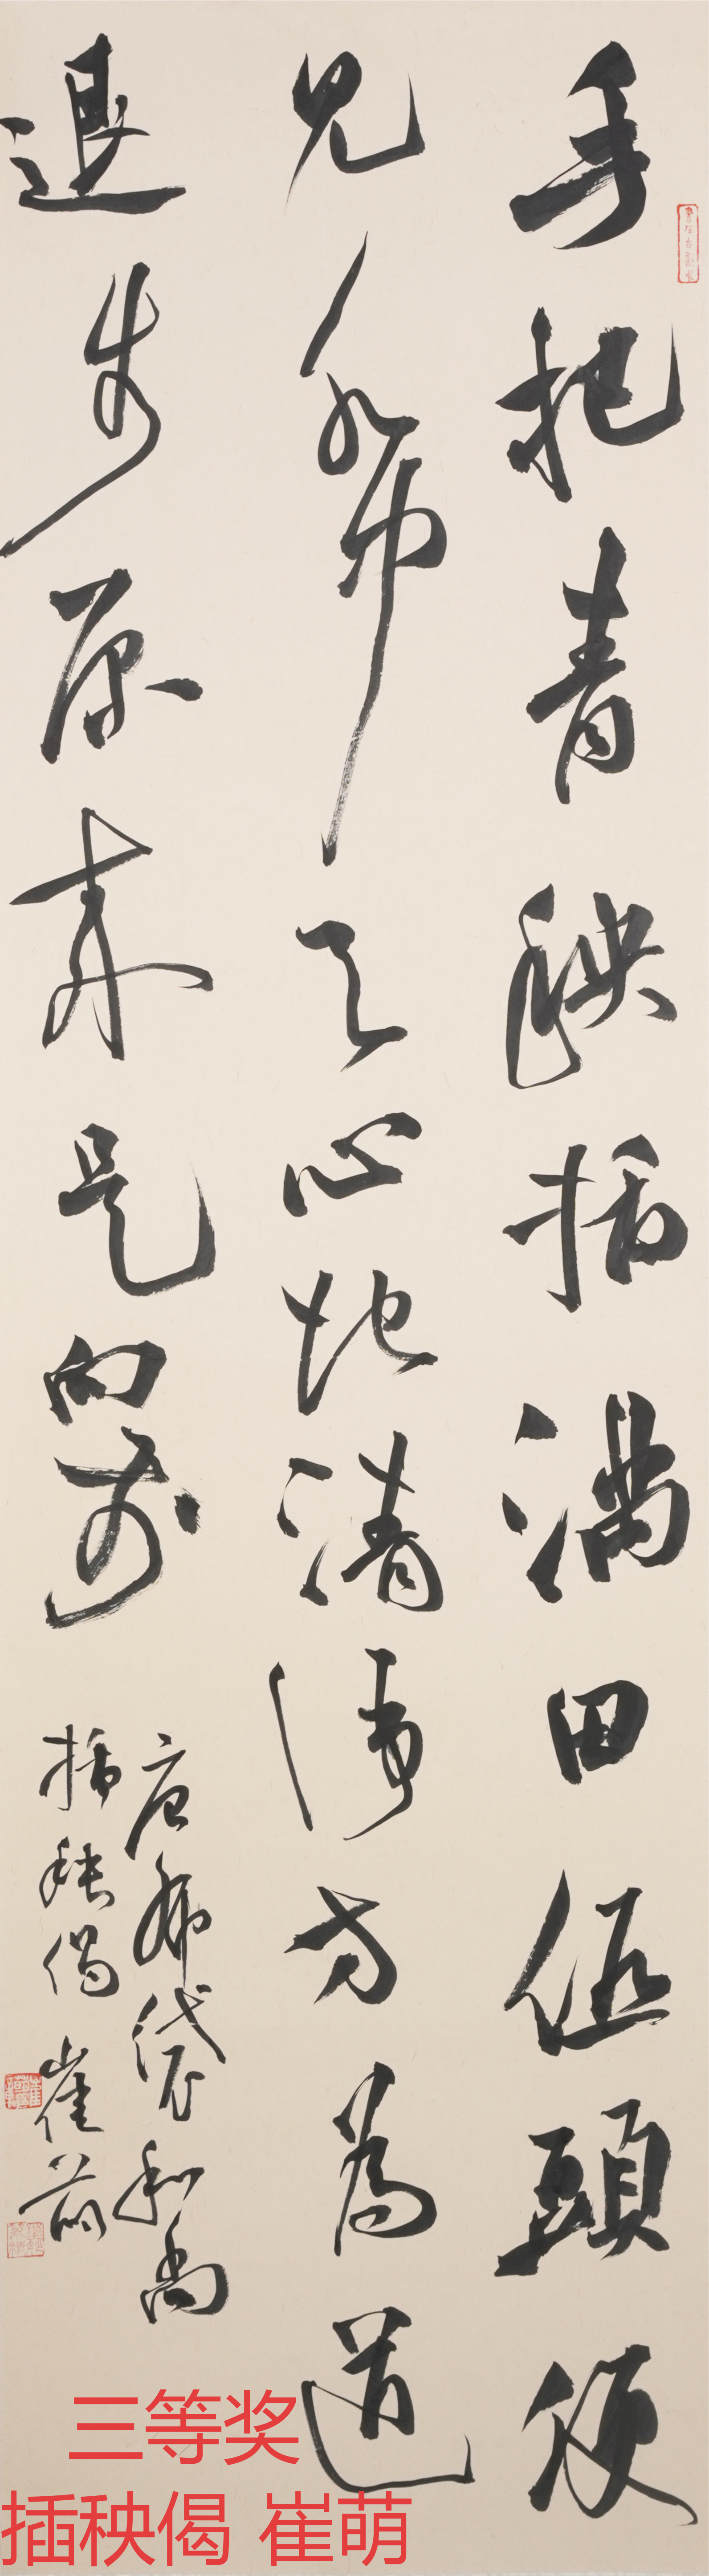 手把青秧插滿田低頭便
見水中天心地清淨方為道
退步原來是向前
唐布袋和尚
插秧偈 崔萌
三等奖
插秧偈 崔萌